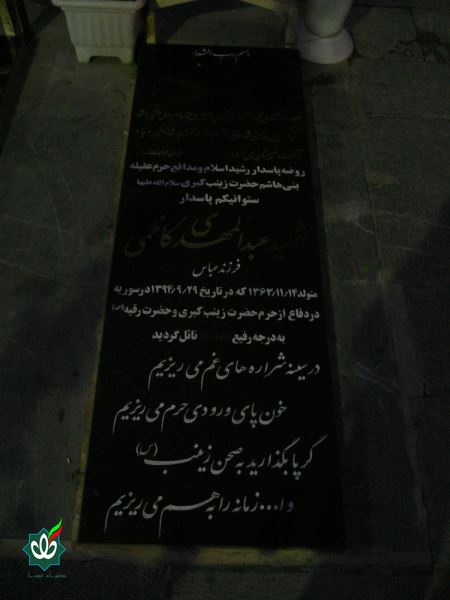 روضه پاسدار رشید اسلام و مدافع حرم عقیله
بنی هاشم حضرت زینب کبری سلام الله علیها
ستوانیکم پاسدار
شهید عبدالمهدی کاظمی
فرزند عباس
متولد ۱۳۶۳/۱۱/۱۴ که در تاریخ ۱۳۹۴/۹/۲۹ در سوریه
در دفاع از حرم حضرت زینب کبری و حضرت رقیه (س)
به درجه رفیع نائل گردید
در سینه شراره های غم می ریزیم
خون پای ورودی حرم می ریزیم
گر پا بگذارید به صحن زینب (س)
والله... زمانه را به هم می ریزیم